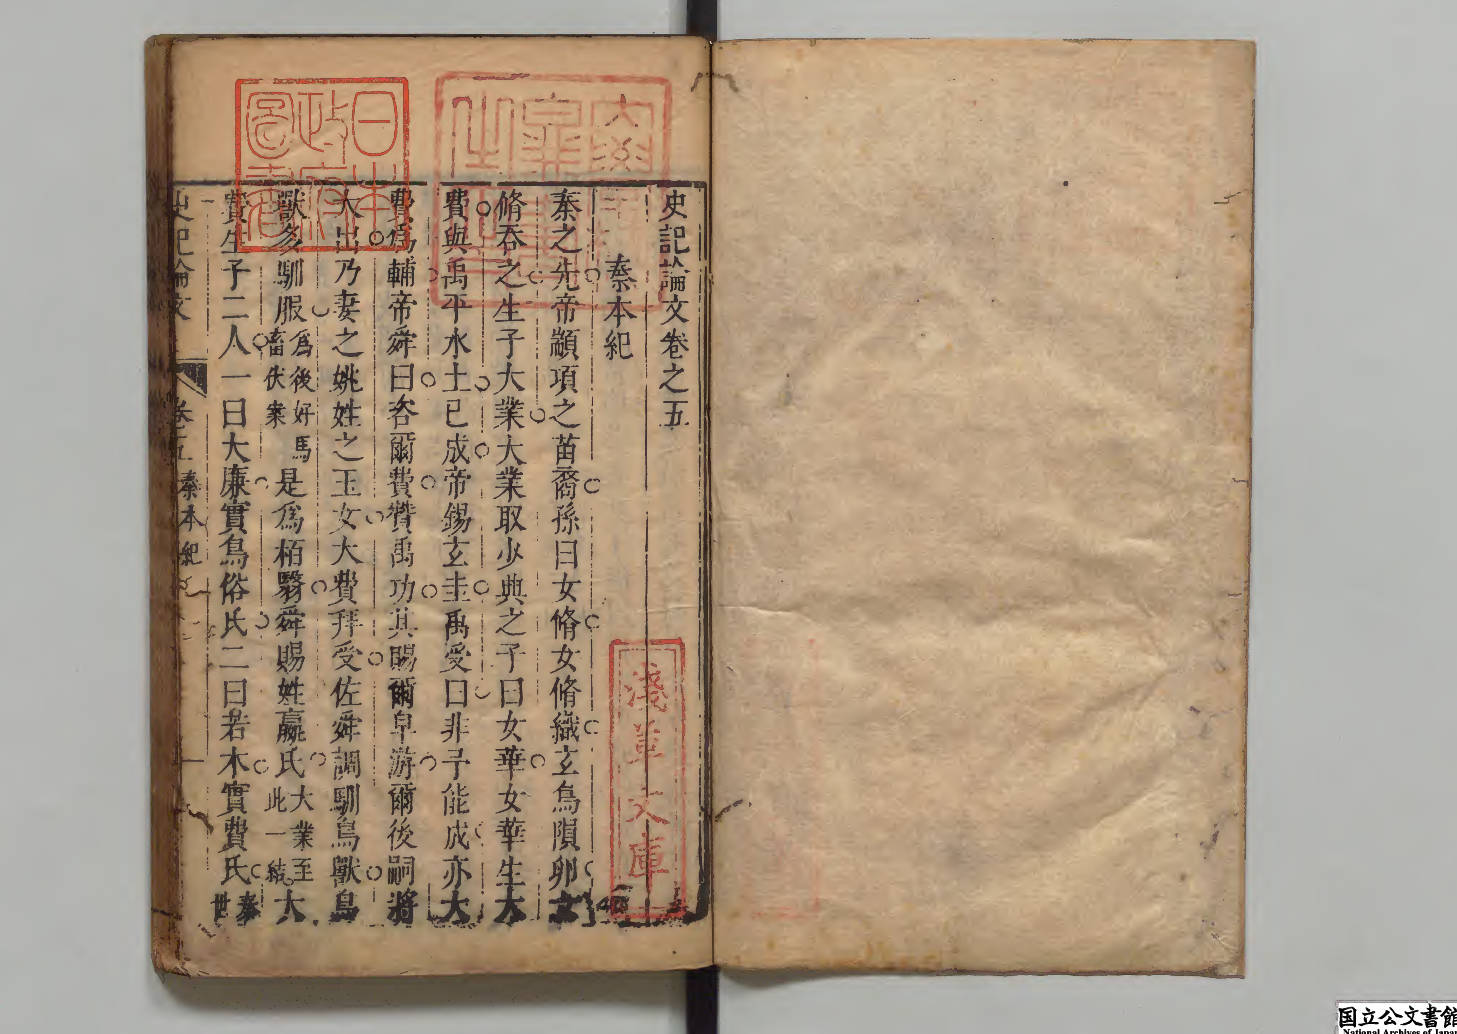 史記論文卷之五
秦本紀
秦之先帝顓頊之苗裔孫曰女脩女脩織玄鳥隕卵女
脩吞之生子大業大業取少典之子曰女華女華生大
費與禹平水土已成帝錫玄圭禹受曰非予能成亦大
費爲輔帝舜曰咨爾費贊禹功其賜爾皁游爾後嗣將
大出乃妻之姚姓之玉女大費拜受佐舜調馴鳥獸鳥
獸多馴服爲後好馬畜伏案是爲栢翳舜賜姓嬴氏大業至此一結大
費生子二人一曰大廉實鳥俗氏二曰若木實費氏秦世
史記論文
卷五
秦本紀
一
日本政府圖書
淺草文庫
国立公文書館
National Archives of Japan